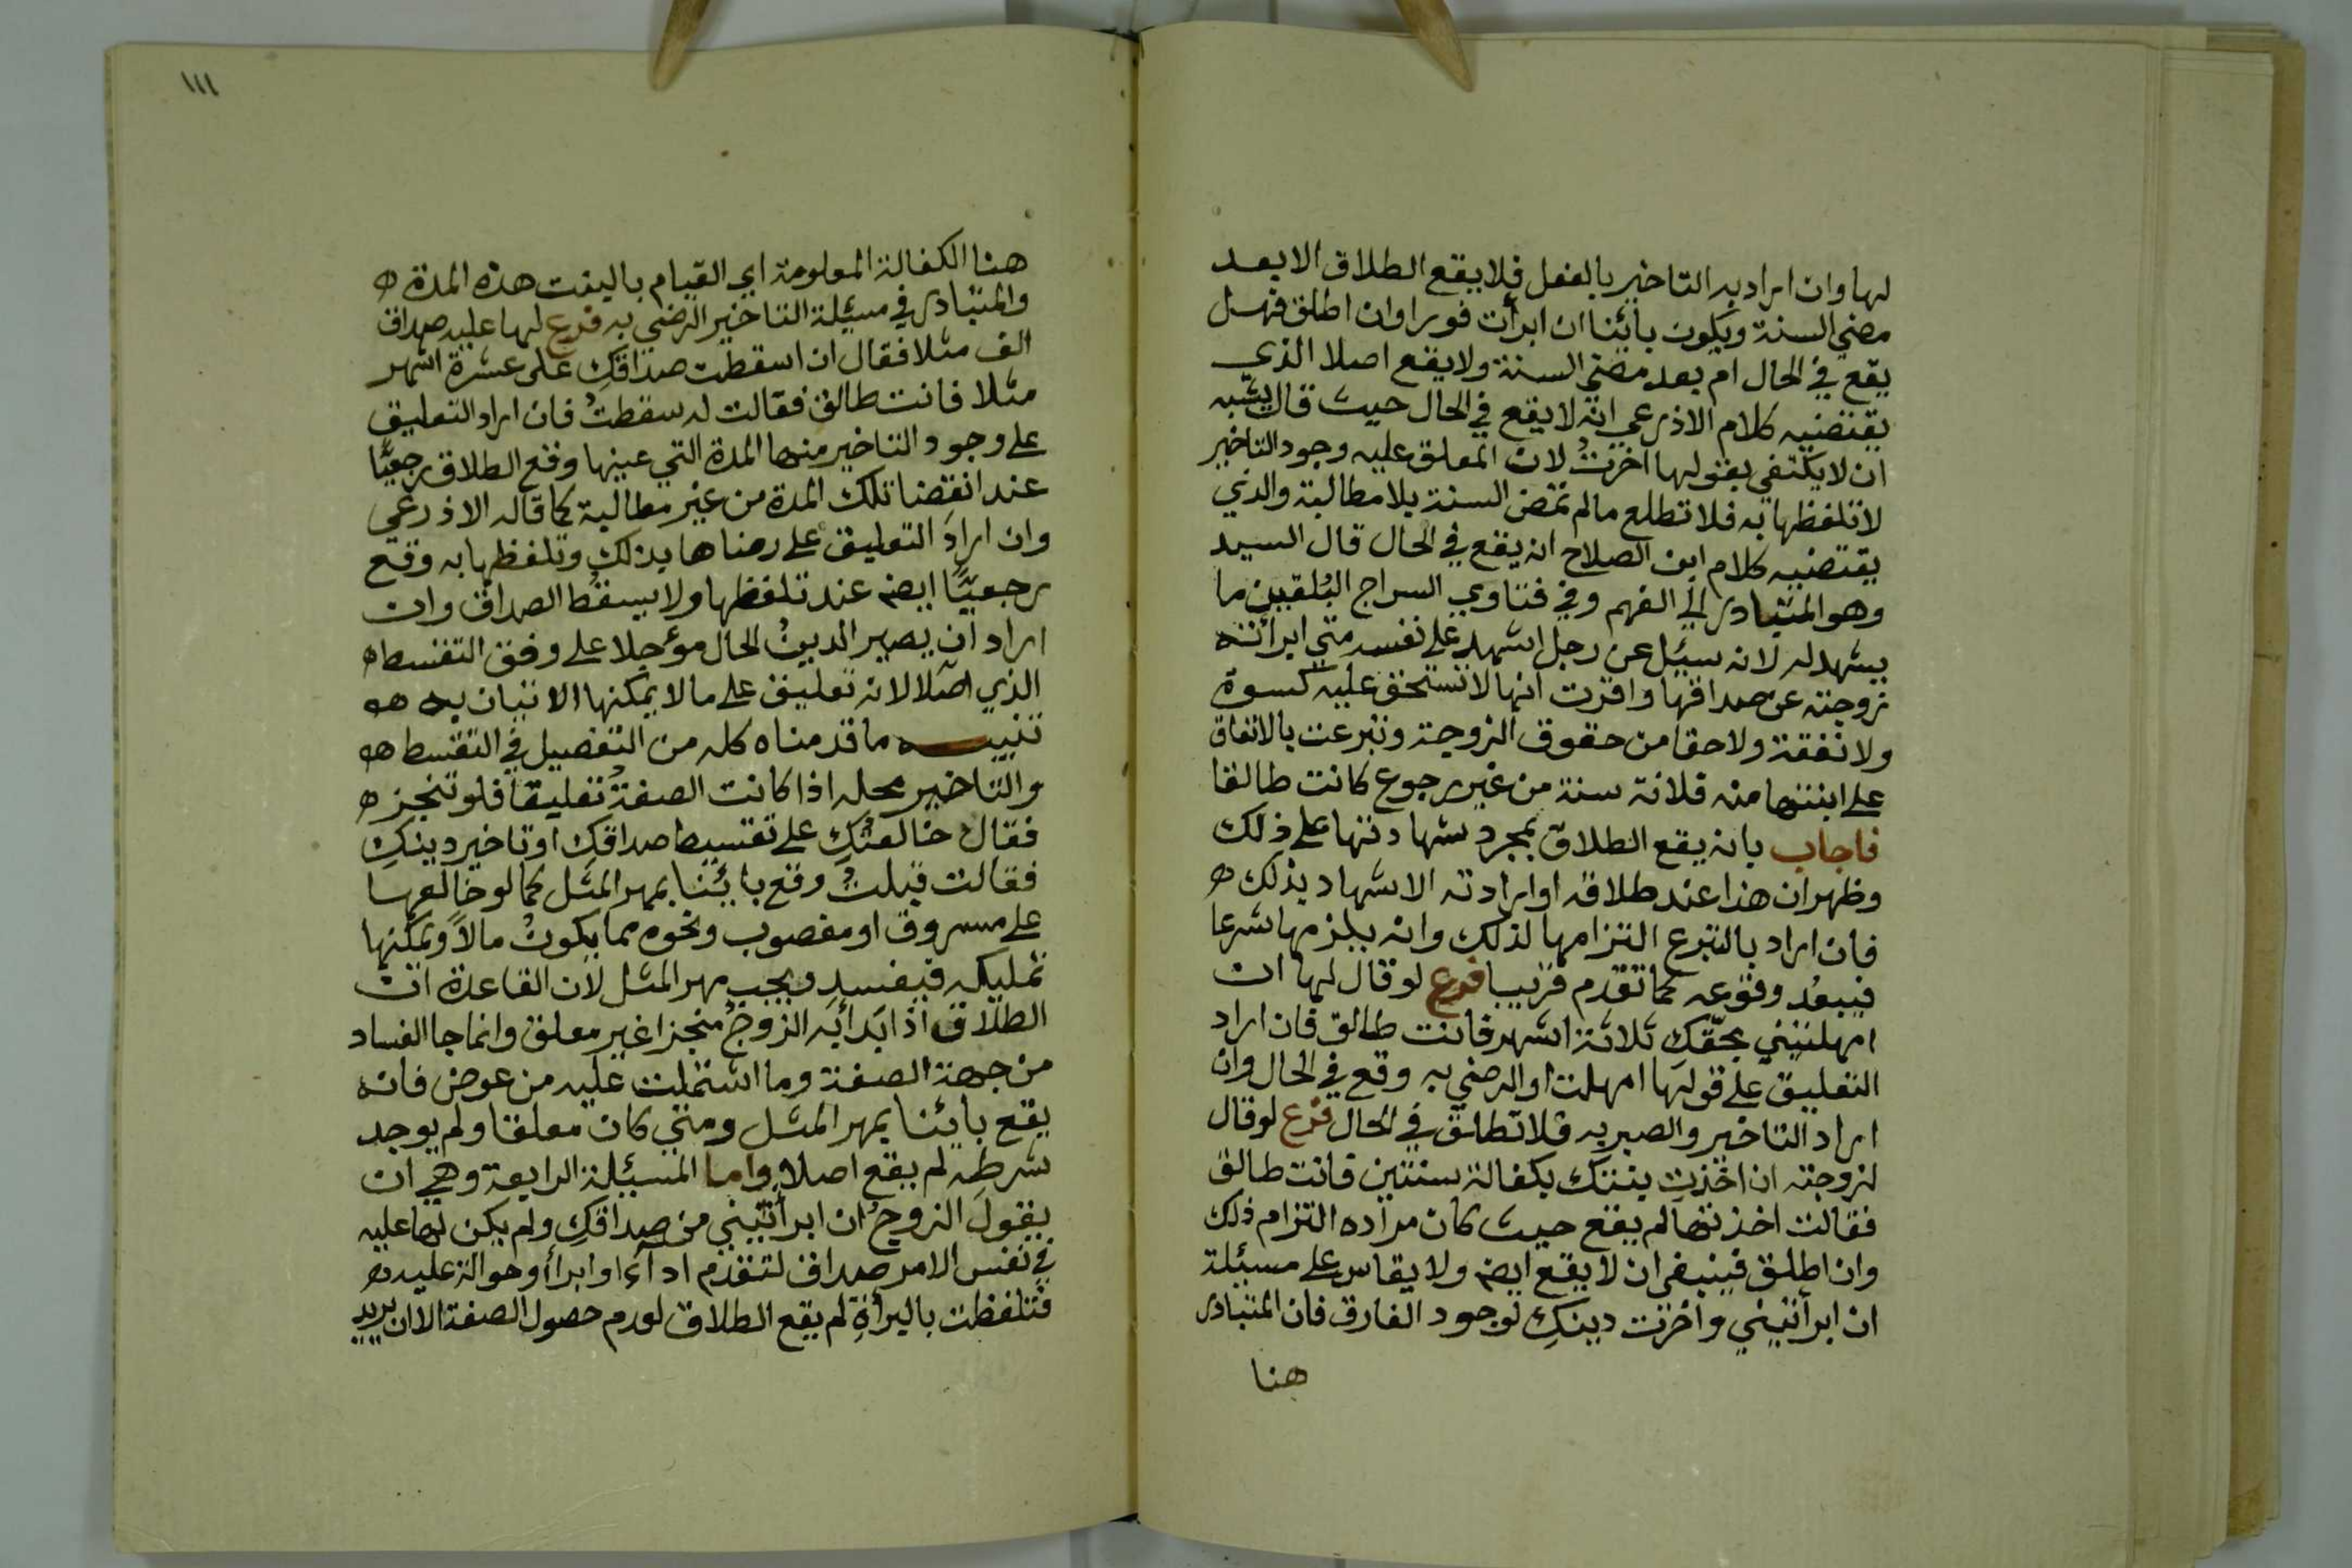 لها وان اراد به التاخير بالفعل فلا يقع الطلاق الا بعد
مضي السنة ويكون بائنا ان ابرأت فورا وان اطلق فهل
يقع في الحال ام بعد مضي السنة ولا يقع اصلا الذي
يقتضيه كلام الاذرعي انه لا يقع في الحال حيث قال يشبه
ان لا يكتفي بقولها اخرتُ لان المعلق عليه وجود التاخير
لا تلفظها به فلا تطلع مالم تمض السنة بلا مطالبة والذي
يقتضيه كلام ابن الصلاح انه يقع في الحال قال السيد
وهو المتبادر الي الفهم وفي فتاوي السراج البُلقيني ما
يشهد له لانه سيئل عن رجل اشهد علي نفسه متي ابرأته
زوجته عن صداقها واقرت انها لا تستحق عليه كسوة
ولا نفقة ولا حقا من حقوق الزوجة وتبرعت بالانفاق
علي ابنتها منه فلانة سنة من غير رجوع كانت طالقا
فاجاب بانه يقع الطلاق بمجرد شهادتها علي ذلك
وظهر ان هذا عند طلاقه او ارادته الاشهاد بذلك ه
فان اراد بالتبرع التزامها لذلك وانه يلزمها شرعا
فيبعُد وقوعه كما تقدم قريبا فرع لو قال لها ان
امهلتيني بحقّكِ ثلاثة اشهر فانت طالق فان اراد
التعليق علي قولها امهلت او الرضي به وقع في الحال وان
اراد التاخير والصبر به فلا تطلق في الحال فرع لو قال
لزوجته ان اخذت بنتك بكفالة سنتين فانت طالق
فقالت اخذتها لم يقع حيث كان مراده التزام ذلك
وان اطلق فينبغي ان لا يقع ايضه ولا يقاس علي مسيئلة
ان ابرأتيني واخرت دينكِ لوجود الفارق فان المتبادر
هنا
١١١
هنا الكفالة المعلومة اي القيام بالبنت هذه المدة ه
والمتبادر في مسيئلة التاخير الرضي به فرع لها عليه صداق
الف مثلا فقال ان اسقطت صداقكِ على عشرة اشهر
مثلا فانت طالق فقالت له سقطتُ فان اراد التعليق
علي وجود التاخير منها المدة التي عينها وقع الطلاق رجعيًّا
عند انقضا تلك المدة من غير مطالبة كما قاله الاذرعي
وان ارادَ التعليق علي رضاها بذلك وتلفظها به وقع
رجعيًّا ايضه عند تلفظها ولا يسقُط الصداق وان
اراد ان يصير الدينُ الحال مؤجلا علي وفق التقسيط ه
الذي اصلا لانه تعليق علي ما لا يمكنها الاتيان به هه
تنبيه ما قدمناه كله من التفصيل في التقسيط هه
والتاخير محله اذا كانت الصفةُ تعليقا فلو تنجز ه
فقال خالعتُكِ علي تقسيط صداقكِ او تاخير دينكِ
فقالت قبلتُ وقع بائنا بمهر المثل كما لو خالعها
علي مسروق او مغصوب ونحوه مما يكونُ مالاً ويمكنها
تمليكه فيفسد ويجب مهر المثل لان القاعدة ان
الطلاق اذا بَدأ به الزوجُ منجزا غير معلق وانما جا الفساد
من جهة الصفة وما اشتملت عليه من عوض فانه
يقع بائنا بمهر المثل ومتي كان معلقا ولم يوجد
شرطه لم يقع اصلا واما المسيئلة الرابعة وهي ان
يقول الزوجُ ان ابرأتيني من صداقكِ ولم يكن لها عليه
في نفس الامر صداق لتقدم اداءٍ او ابرأ وحوالة عليه ه
فتلفظت بالبرأةِ لم يقع الطلاق لعدم حصول الصفة الا ان يريد